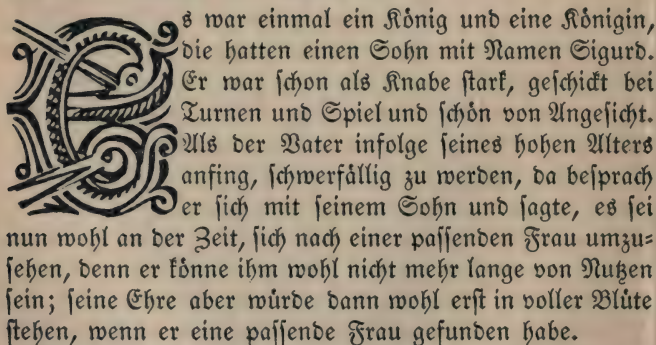 Es war einmal ein König und eine Königin,
die hatten einen Sohn mit Namen Sigurd.
Er war schon als Knabe stark, geschickt bei
Turnen und Spiel und schön von Angesicht.
Als der Vater infolge seines hohen Alters
anfing, schwerfällig zu werden, da besprach
er sich mit seinem Sohn und sagte, es sei
nun wohl an der Zeit, sich nach einer passenden Frau umzu-
sehen, denn er könne ihm wohl nicht mehr lange von Nutzen
sein; seine Ehre aber würde dann wohl erst in voller Blüte
stehen, wenn er eine passende Frau gefunden habe.